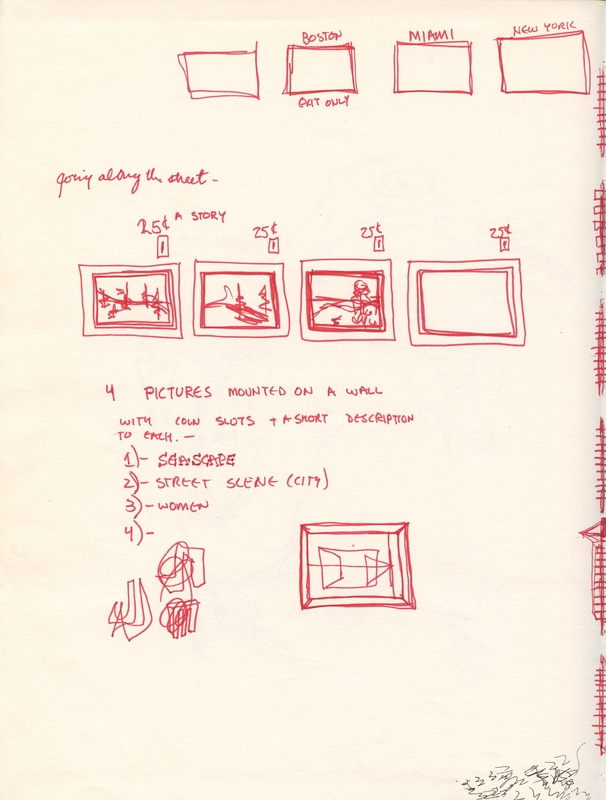 BOSTON
MIAMI
NEW YORK
EXIT ONLY
going along the street -
25¢ A STORY
25¢
25¢
25¢
4 PICTURES MOUNTED ON A WALL
WITH COIN SLOTS + A SHORT DESCRIPTION
TO EACH. -
1)- SEASCAPE
2)- STREET SCENE (CITY)
3)- WOMEN
4)-